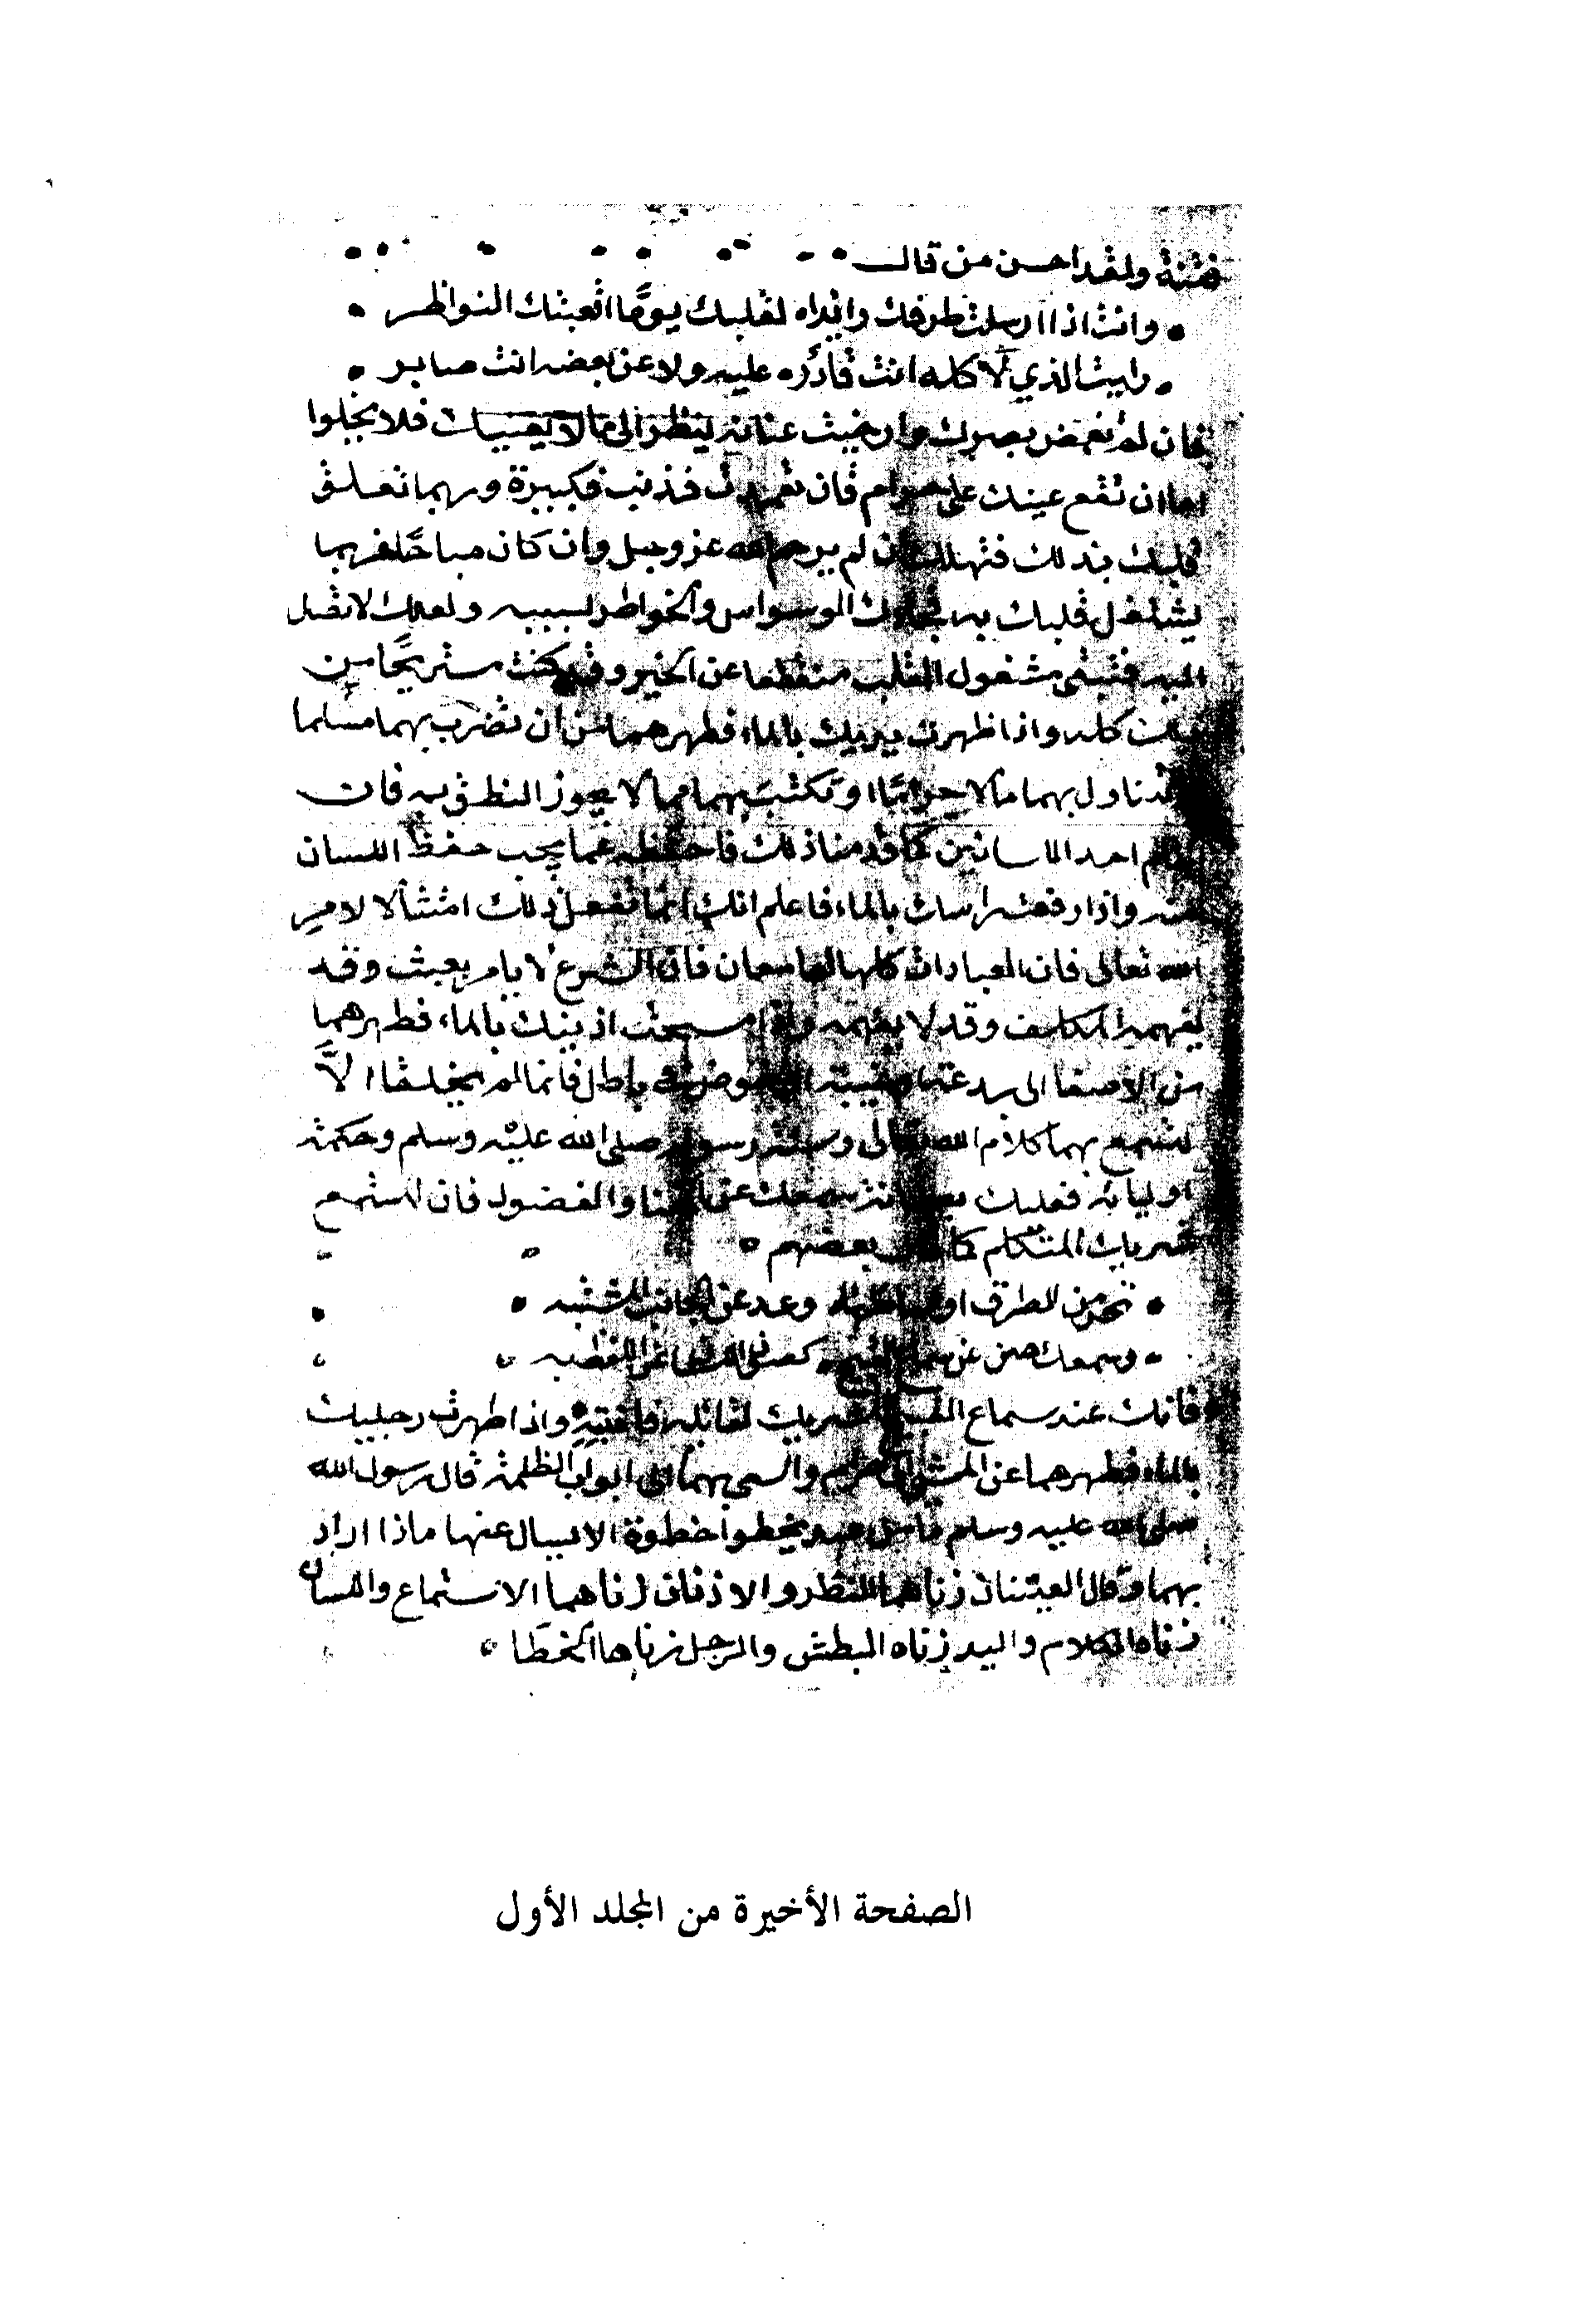 فتنة ولقد احسن من قال
وانت اذا ارسلت طرفك رائداه لقلبك يومًا اتعبتك النواظر
رايت الذي لا كله انت قادره عليه ولا عن بعضه انت صابر
فان لم تغمض بصرك وارخيت عنانه ينظر الى ما لا يعنيك فلا يخلوا
اما ان تقع عينك على حرام فان تعمدت فذنب فكبيرة وربما تعلق
قلبك بذلك فتهلك ان لم يرحم الله عز وجل وان كان مباحًا فربما
يشتغل قلبك به الوسواس والخواطر بسببه ولعلك لا تصل
اليه فتبقى مشغول القلب منقطعا عن الخير وقد كنت مستريحًا من
ذلك كله واذا طهرت يديك بالماء فطهرهما من ان تضرب بهما مسلما
تتناول بهما مالا حرامًا او تكتب بهما مما لا يجوز النطق به فان
القلم احد اللسانين كما قدمنا ذلك فاحفظه عما يجب حفظ اللسان
عنه واذا رفعت راسك بالماء فاعلم انك انما تفعل ذلك امتثالا لامر
الله تعالى فان العبادات كلها لها معان فان الشرع لا يامر بعبث وقد
يفهمه المكلف وقد لا يفهمه واذا مسحت اذنيك بالماء فطهرهما
من الاصغا الى بدعة او غيبة او خوض في باطل فانما لم يخلقا الاَّ
لتسمع بهما كلام الله تعالى وسنة رسوله صلى الله عليه وسلم وحكمة
اوليائه فعليك سمعك عن الخنا والفضول فان المستمع
شريك المتكلم كما بعضهم
تحر من الطرق اوساطها وعد عن الجانب المشتبه
وسمعك صن عن سماع القبيح كصون اللسان عن النطق به
فانك عند سماع القبيح شريك لقائله فانتبه واذا طهرت رجليك
بالماء فطهرهما عن المشي الى حرام والسعي بهما الى ابواب الظلمة قال رسول الله
صلى الله عليه وسلم ما من عبد يخطوا خطوة الا يسال عنها ماذا اراد
بها وقال العينان زناهما النظر والاذنان زناهما الاستماع واللسان
زناه الكلام واليد زناه البطش والرجل زناها الخطا
الصفحة الأخيرة من المجلد الأول